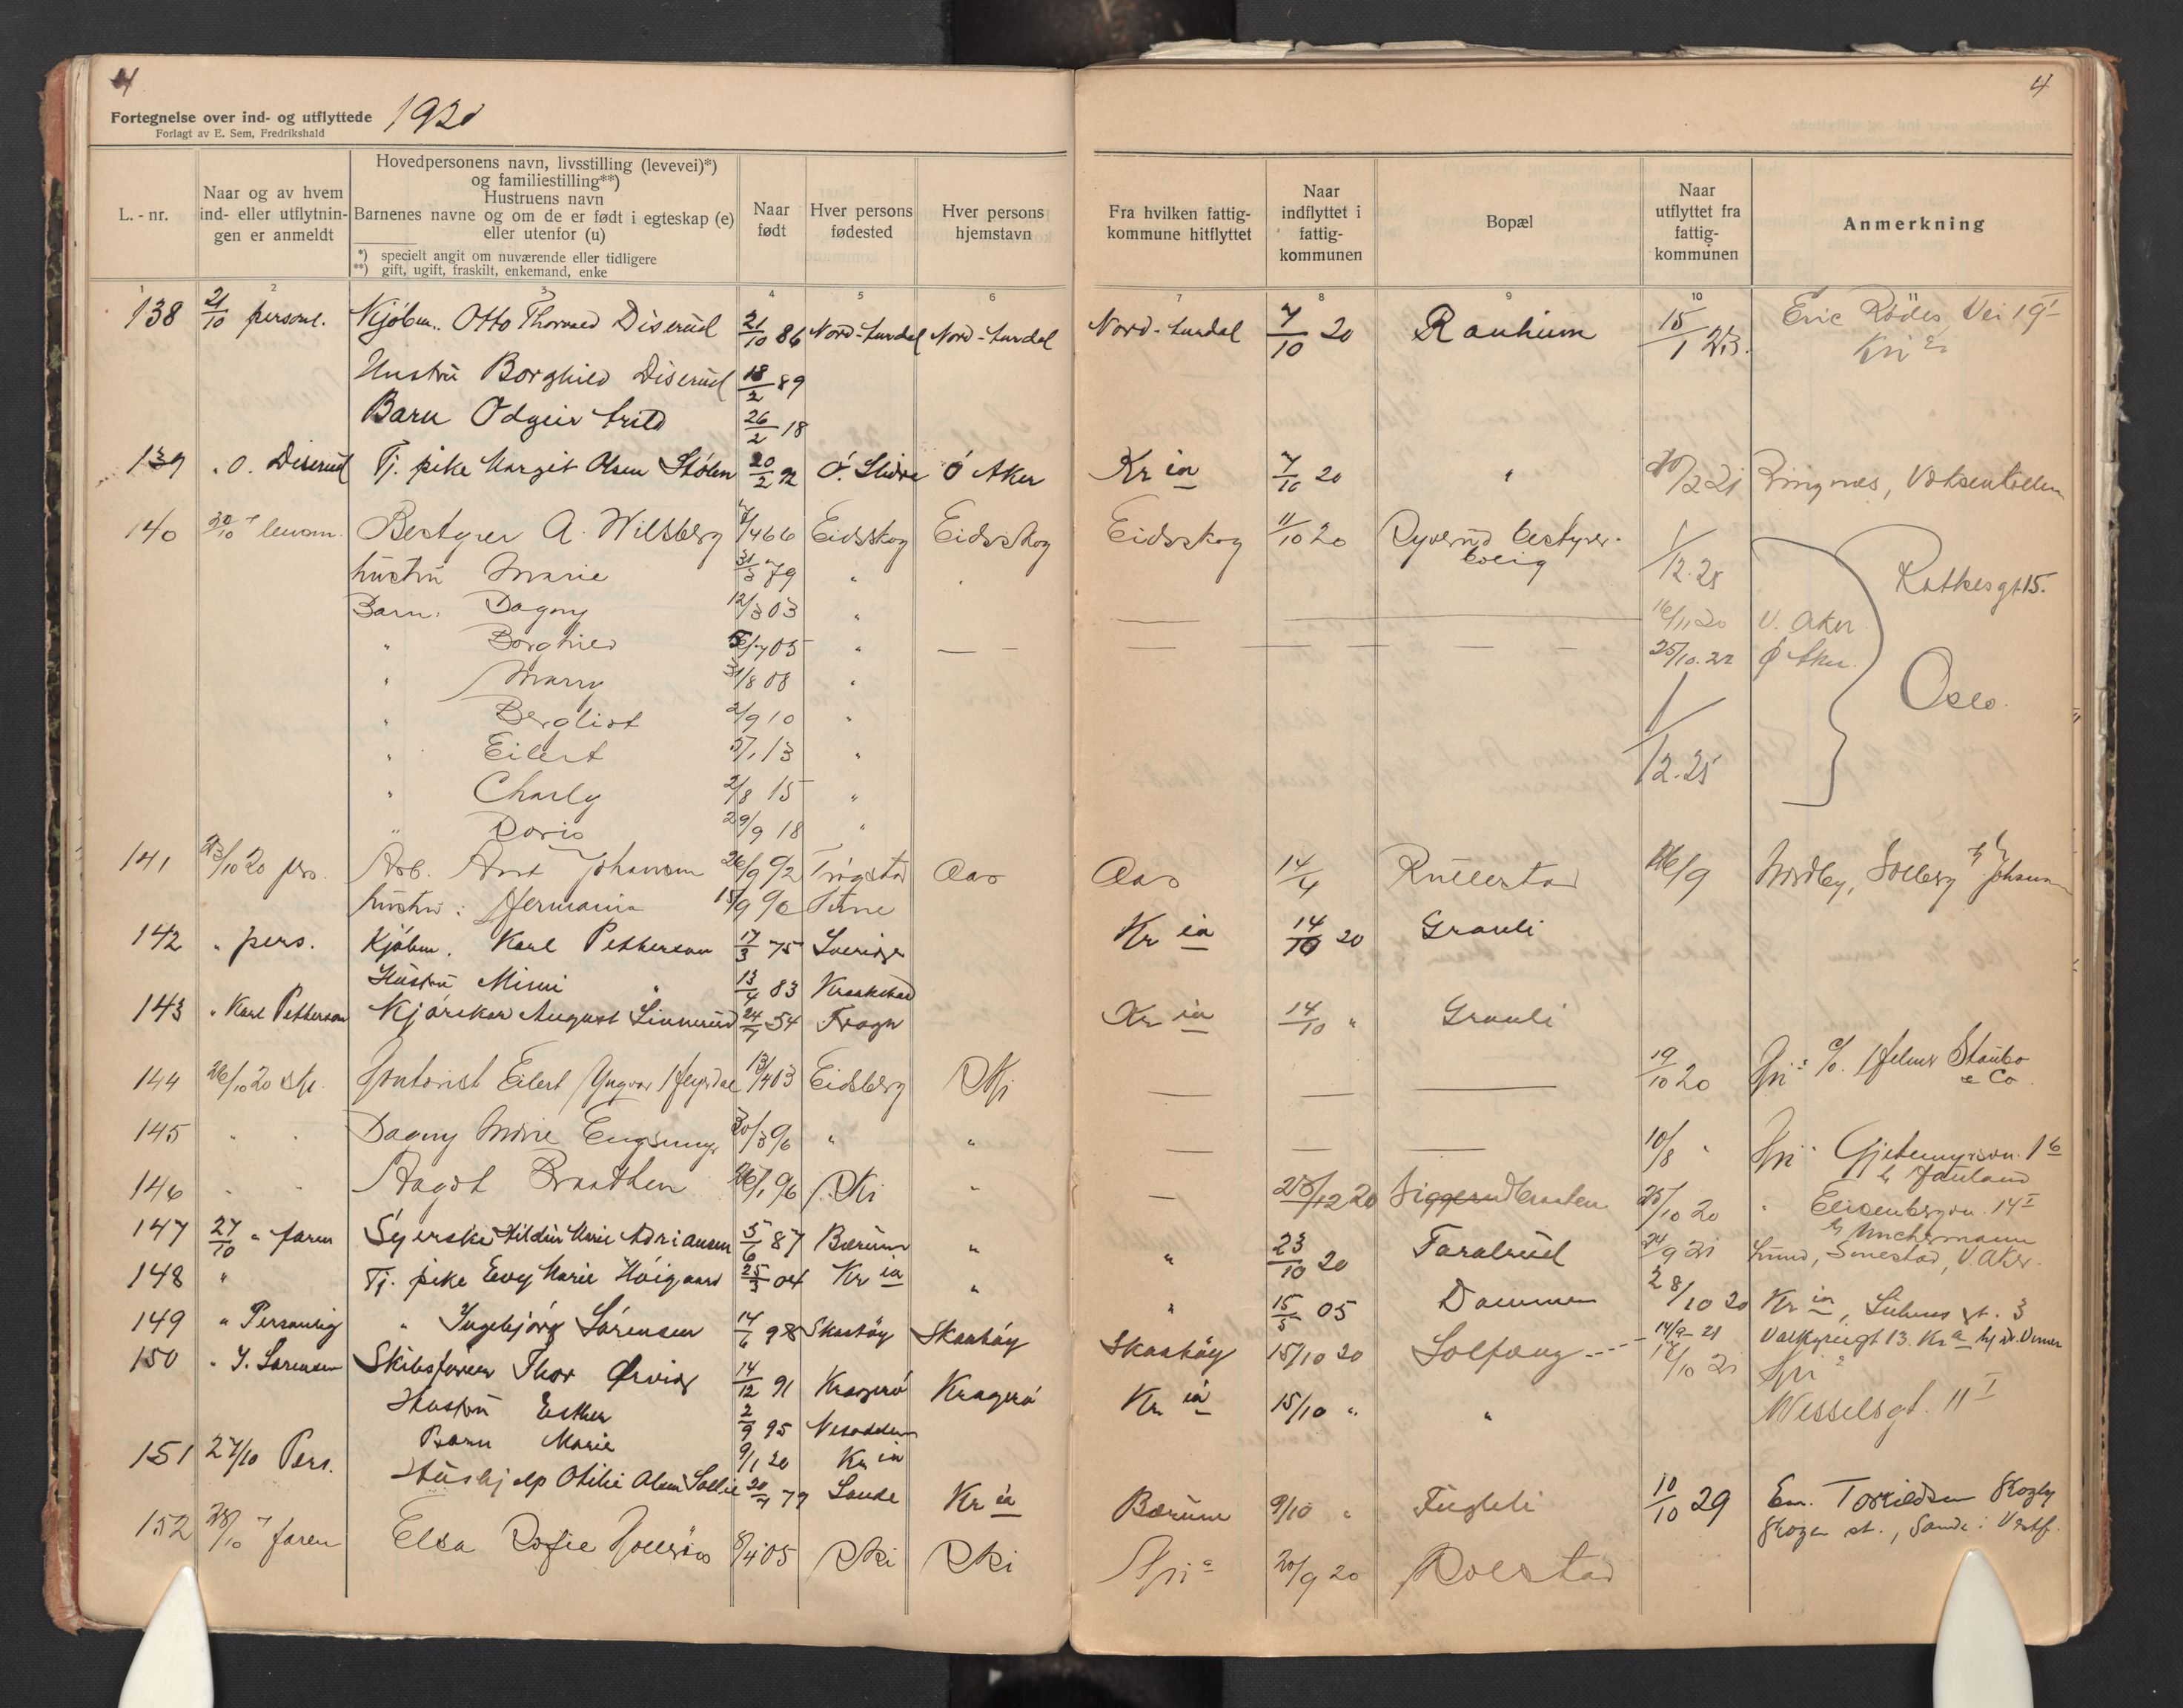 4
Fortegnelse over ind- og utflyttede 1920
Forlagt av E. Sem, Fredrikshald
L. - nr.
Naar og av hvem
ind- eller utflytnin-
gen er anmeldt
Hovedpersonens navn, livsstilling (levevei)*)
og familiestilling**)
Hustruens navn
Barnenes navne og om de er født i egteskap (e)
eller utenfor (u)
*) specielt angit om nuværende eller tidligere
**) gift, ugift, fraskilt, enkemand, enke
Naar
født
Hver persons
fødested
Hver persons
hjemstavn
4
Fra hvilken fattig-
kommune hitflyttet
Naar
indflyttet i
fattig-
kommunen
Bopæl
Naar
utflyttet fra
fattig-
kommunen
Anmerkning
1 2 3 4 5 6 7 8 9 10 11
138 21/10 personl. Kjøbm. Otto Thorvald Diserud 21/10 86 Nord-Aurdal Nord-Aurdal Nord-Aurdal 7/10 20 Rauheim 15/1 23. Eric Rødes Vei 19
Hustru Borghild Diserud 18/2 89
Barn Odgeir 26/2 18
139 " O. Diserud Tj. pike Margit Olsen Stølen 20/2 92 Ø. Slidre Ø Aker Kr ia 7/10 20 " 12 21 Ringnes, Voksenkollen
140 Bestyrer A. Wilsberg 4 66 Eidsskog Eidsskog Eidsskog 11/10 20 Dyverud bestyrer-
bolig
hustru Marie 31/3 79 " 1/12.25 Ratkesgt 15.
Barn: Dagny 12/3 03 " 16/11 20 V. Aker
" Borghild 05 " 25/10.22 Ø Aker.
" Marry 31/8 08 "
" Bergliot 2/9 10 " Oslo.
" Eilert 5/1 13 " 1/12.25
" Charly 2/8 15 "
" Doris 29/9 18 "
141 23/10 20 pers. Arb. Arnt Johansen 26/9 92 Trøgstad Aas Aas 14/4 Rullestad 26/9 Nordby, Solberg
hustru: Hermania 15/9 90
142 " pers. Kjøbm. Karl Petterson 17/3 75 Sverige Kr ia 14/10 20 Granli
Hustru Mimi " 13/4 83 Kraakstad
143 " Karl Petterson Kjørekar August Linnerud 24/7 54 Frogn Kr ia 14/10 " Granli
144 26/10 20 Kontorist Eilert Yngvar 13/4 03 Eidsberg Ski — — — 19/10 20 c/o. Hilmer Staubo
& Co.
145 " " Dagny Marie 30/3 96 " " — — — 10/8 " Gjetemyrsvn. 1 b
146 " " Aagot Braathen 26/1 96 Ski " — 23/12 20 25/10 20 " Eilenbergvn. 14 I
147 27/10 " faren Syerske Hildur Marie Adriansen 5/6 87 Bærum " " 23/10 20 Taralrud 24/9 21 Lund, Smestad, V. Aker.
148 " Tj. pike Evy Marie Høigaard 25/3 04 Kr ia " " 15/5 05 Dammen 28/10 20 Kr ia
149 " Personlig " Ingebjørg Sørensen 14/6 98 Skaatøy Skaatøy Skaatøy 15/10 20 Solfang --- 14/9- 21 Valkyriegt 13. Kr a
150 " I. Sørensen Skibsfører Thor Ørvig 14/12 91 Kragerø Kragerø Kr ia 15/10 " " 18/10 21 Wesselsgt. 11 I
Hustru Esther 2/9 95 Nesodden
Barn Marie 9/1 20 Kr ia
151 27/10 Pers. Hushjelp Otilie Olsen Sollie 20/7 79 Sande Kr ia Bærum 9/10 " Fugleli 10/10 29 Em. Torkildsen Skogly
Skoger st., Sande i Vestf.
152 28/10 faren Elsa Sofie 8/4 05 Ski Ski 20/9 20 Rolstad